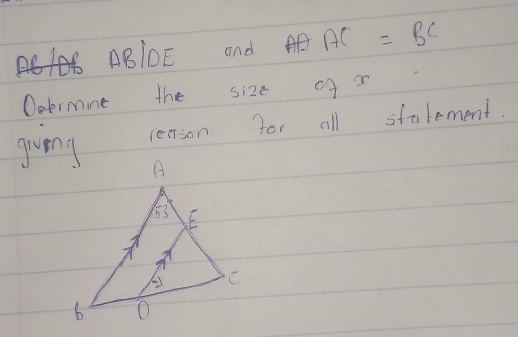 AB/DE and AC = BC
Determine the size of x
giving reason for all statement.
A
53
E
C
B
D